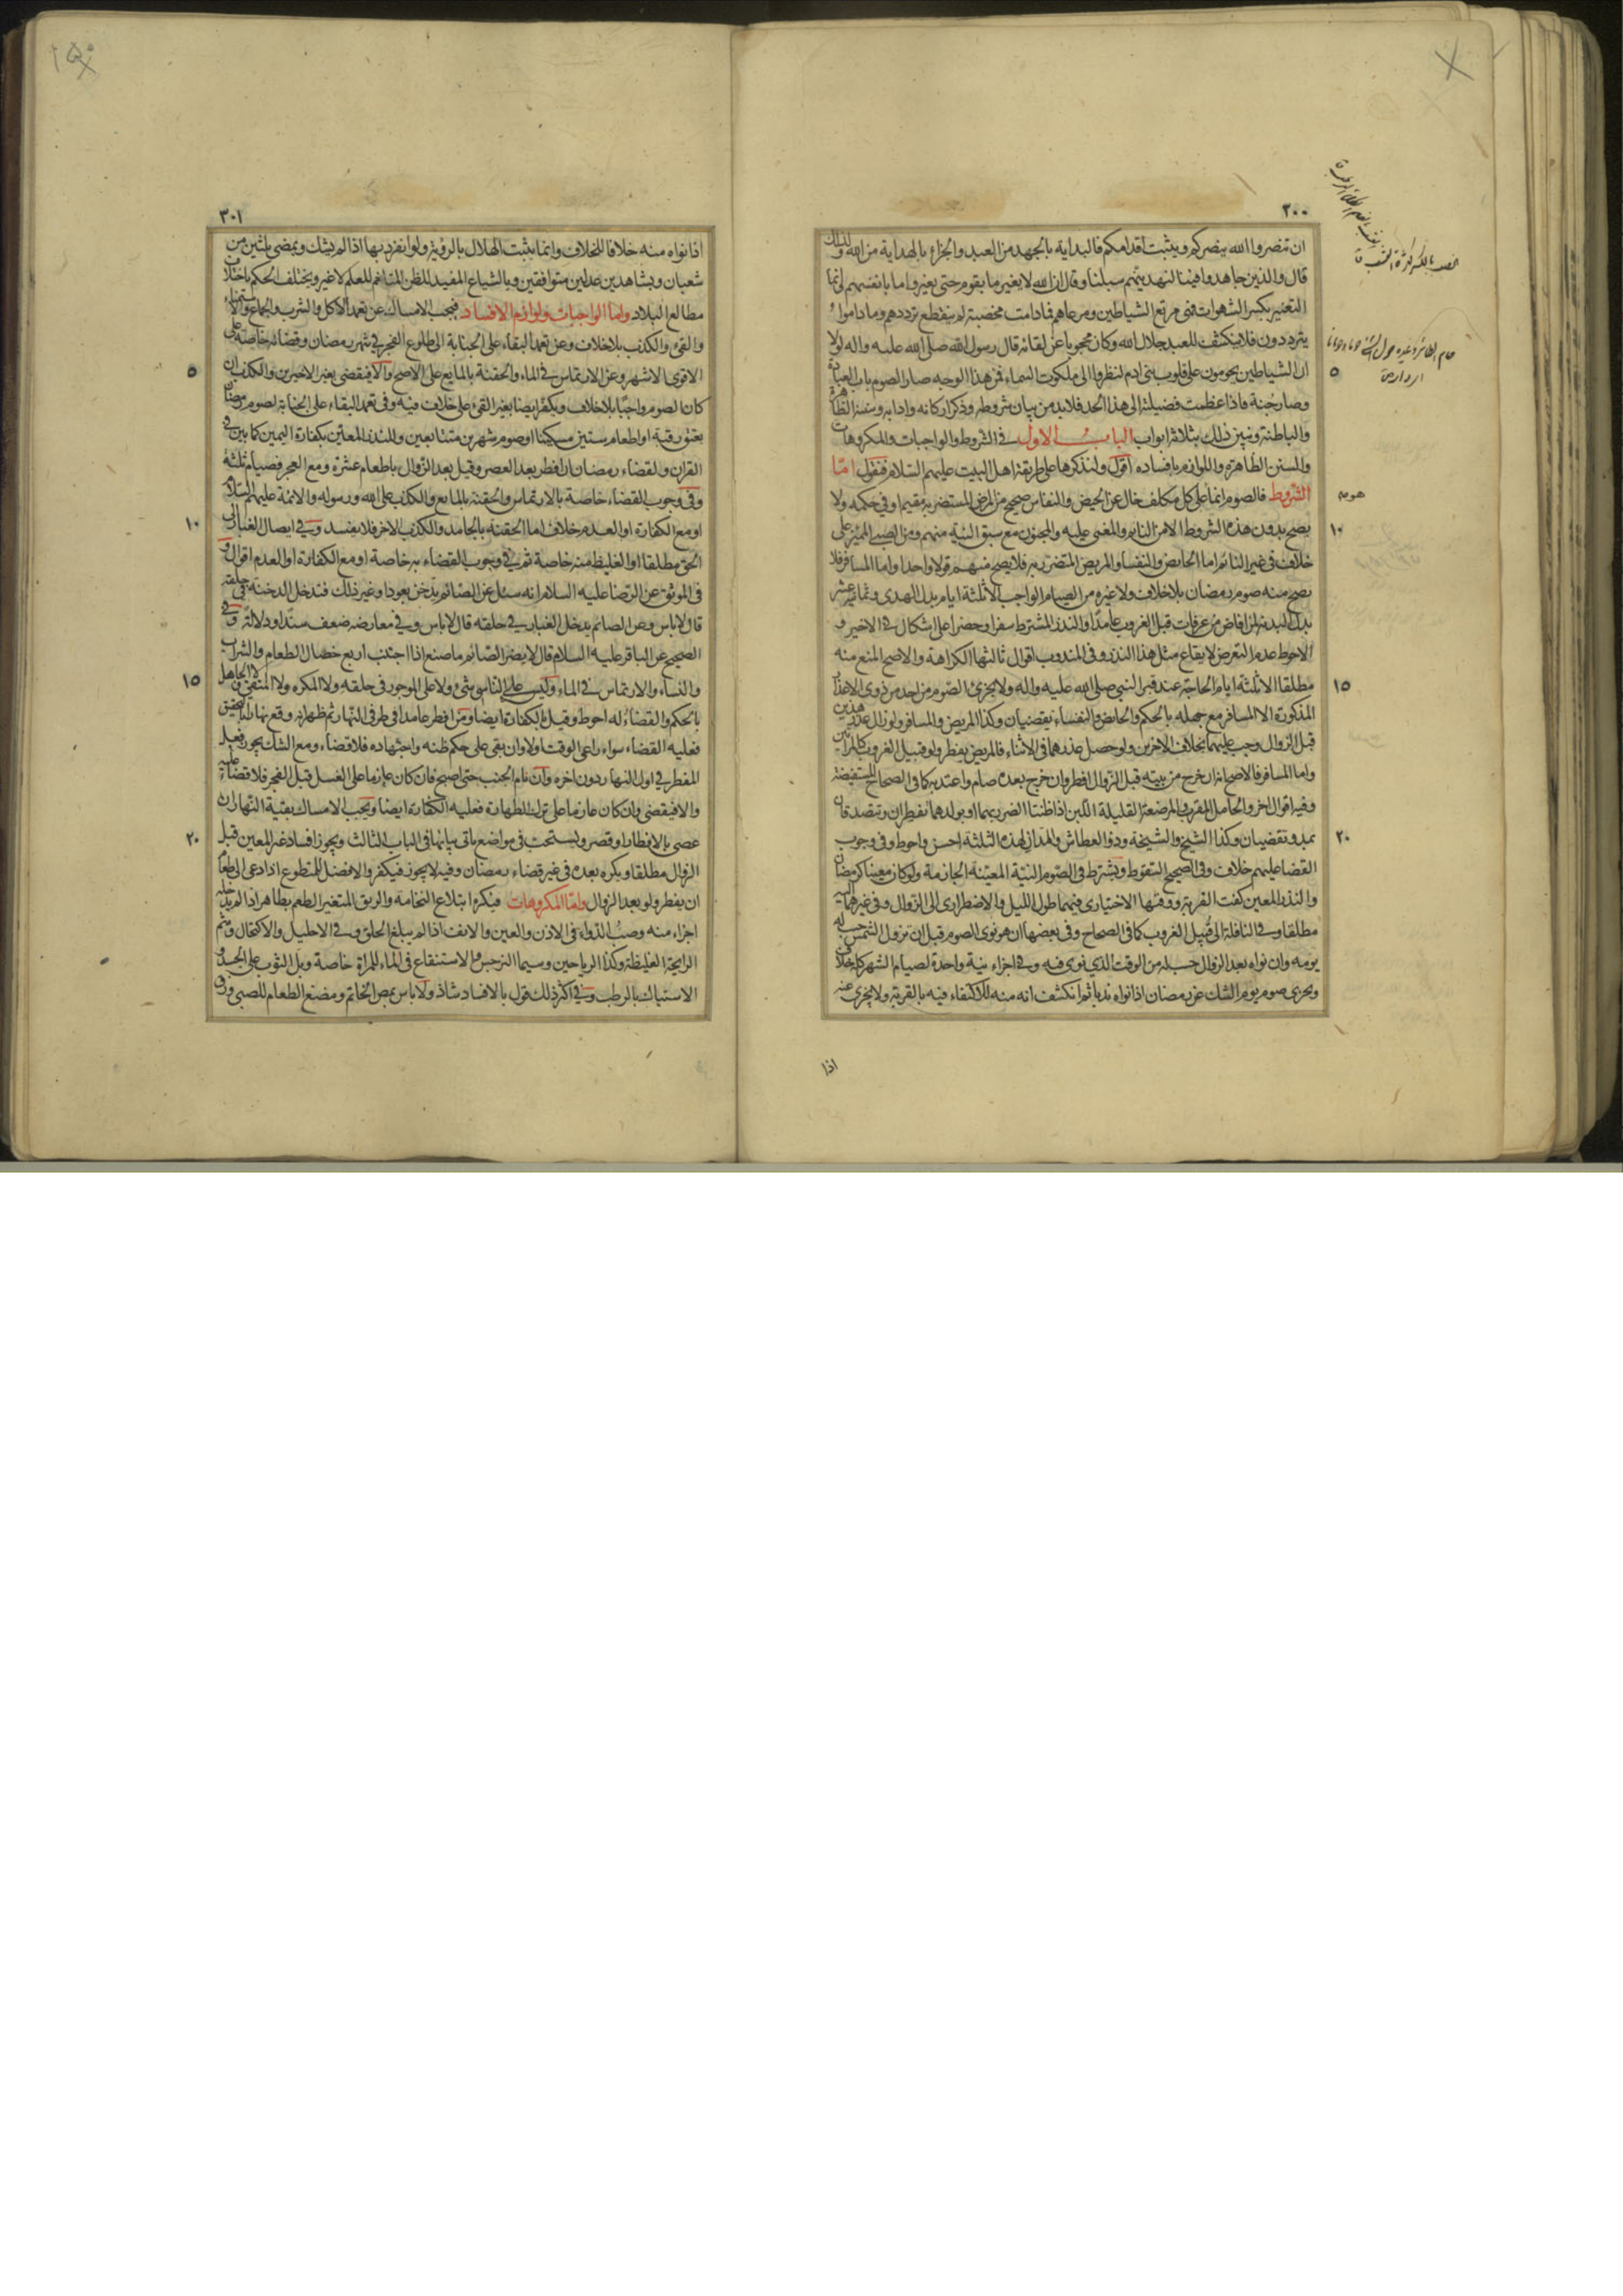 ٢٠٠
ان تنصروا الله ينصركم ويثبت اقدامكم فالبداية بالجهد من العبد والجزاء بالهداية من الله ولذلك
قال والذين جاهدوا فينا لنهدينهم سبلنا وقال ان الله لا يغير ما بقوم حتى يغيروا ما بانفسهم وانما
التغيير بكسر الشهوات فهي مرتع الشياطين ومرعاهم فما دامت مخصبة لم ينقطع ترددهم وما داموا
يترددون فلا ينكشف للعبد جلال الله وكان محجوبا عن لقائه قال رسول الله صلى الله عليه واله لولا
ان الشياطين يحومون على قلوب بني ادم لنظروا الى ملكوت السماء فمن هذا الوجه صار الصوم باب العبادة
وصار جنة فاذا عظمت فضيلته الى هذا الحد فلا بد من بيان شروطه وذكر اركانه وادابه وسننه الظاهرة
والباطنة ونبين ذلك بثلاثة ابواب الباب الاول في الشروط والواجبات والمكروهات
والسنن الظاهرة واللوازم بافساده اقول ولنذكرها على طريقة اهل البيت عليهم السلام فنقول اما
الشروط فالصوم انما على كل مكلف خال عن الحيض والنفاس صحيح من المرض المستضر به مقيم او في حكمه ولا
يصح بدون هذه الشروط الا من النائم والمغمى عليه والمجنون مع سبق النية منهم ومن الصبي المميز على
خلاف في غير النائم اما الحائض والنفساء والمريض المتضرر به فلا يصح منهم قولا واحدا واما المسافر فلا
يصح منه صوم رمضان بلا خلاف ولا غيره من الصيام الواجب الا ثلثة ايام بدل الهدى وثمانية عشر
بدل البدنة لمن افاض من عرفات قبل الغروب عامدا والنذر المشترط سفرا وحضرا على اشكال في الاخير و
الاحوط عدم التعرض لايقاع مثل هذا النذر وفي المندوب اقوال ثالثها الكراهة والاصح المنع منه
مطلقا الا ثلثة ايام الحاجة عند قبر النبي صلى الله عليه واله ولا يجزئ الصوم من احد من ذوي الاعذار
المذكورة الا المسافر مع جهله بالحكم والحائض والنفساء تقضيان وكذا المريض والمسافر ولو زال عذر هذين
قبل الزوال وجب عليهما بخلاف الاخرين ولو حصل عذرهما في الاثناء فالمريض يفطر ولو قبيل الغروب كالمراتين
واما المسافر فالاصح انه ان خرج من بيته قبل الزوال افطر وان خرج بعده صام واعتد به كما في الصحاح المستفيضة
وفيه اقوال اخر والحامل المقرب والمرضعة القليلة اللبن اذا ظنتا الضرر بهما او بولدهما تفطران وتتصدقان
بمد وتقضيان وكذا الشيخ والشيخة وذو العطاش والمدان لهذه الثلثة احسن واحوط وفي وجوب
القضا عليهم خلاف وفي الصحيح السقوط ويشترط في الصوم النية المعينة الجازمة ولو كان معينا كرمضان
والنذر المعين كفت القربة ووقتها الاختياري فيهما طول الليل والاضطراري الى الزوال وفي غيرهما اليه
مطلقا وفي النافلة الى قبيل الغروب كما في الصحاح وفي بعضها ان هو نوى الصوم قبل ان تزول الشمس حسب له
يومه وان نواه بعد الزوال حسب له من الوقت الذي نوى فيه وفي اجزاء نية واحدة لصيام الشهر كله خلاف
ويجزي صوم يوم الشك عن رمضان اذا نواه ندبا ثم انكشف انه منه للاكتفاء فيه بالقربة ولا يجزي عنه
اذا
٥
١٠
١٥
٢٠
٣٠١
اذا نواه منه خلافا للخلاف وانما يثبت الهلال بالرؤية ولو انفرد بها اذا لم يشك وبمضي ثلثين من
شعبان وبشاهدين عدلين متوافقين وبالشياع المفيد للظن المتاخم للعلم لا غير ويختلف الحكم باختلاف
مطالع البلاد واما الواجبات ولوازم الافساد فيجب الامساك عن تعمد الاكل والشرب والجماع والاستمناء
والقيء والكذب بلا خلاف وعن تعمد البقاء على الجنابة الى طلوع الفجر في شهر رمضان وقضائه خاصة على
الاقوى الاشهر وعن الارتماس في الماء والحقنة بالمايع على الاصح والا فيقضي بغير الاخيرين والكذب ان
كان الصوم واجبا بلا خلاف ويكفر ايضا بغير القيء على خلاف فيه وفي تعمد البقاء على الجنابة لصوم رمضان
بعتق رقبة او اطعام ستين مسكينا او صوم شهرين متتابعين وللنذر المعين بكفارة اليمين كما بين في
القران ولقضاء رمضان ان افطر بعد العصر وقيل بعد الزوال باطعام عشرة ومع العجز فصيام ثلثة
وفي وجوب القضاء خاصة بالارتماس والحقنة بالمايع والكذب على الله ورسوله والائمة عليهم السلام
او مع الكفارة او العدم خلاف اما الحقنة بالجامد والكذب الاخر فلا يفسد وفي ايصال الغبار الى
الحلق مطلقا او الغليظ منه خاصة ثم في وجوب القضاء به خاصة او مع الكفارة او العدم اقوال و
في الموثق عن الرضا عليه السلام انه سئل عن الصائم يدخن بعود او غير ذلك فتدخل الدخنة في حلقه
قال لا باس وعن الصائم يدخل الغبار في حلقه قال لا باس وفي معارضه ضعف سندا ودلالة وفي
الصحيح عن الباقر عليه السلام قال لا يضر الصائم ما صنع اذا اجتنب اربع خصال الطعام والشراب
والنساء والارتماس في الماء وليس على الناسي شيء ولا على الموجور في حلقه ولا المكره ولا المتقي ولا الجاهل
بالحكم والقضاء له احوط وقيل بالكفارة ايضا ومن افطر عامدا في طرفي النهار ثم ظهر انه وقع نهارا
فعليه القضاء سواء راعى الوقت او لا وان بقي على حكم ظنه واجتهاده فلا قضاء ومع الشك يجوز فعل
المفطر في اول النهار دون اخره وان نام الجنب حتى اصبح فان كان عازما على الغسل قبل الفجر فلا قضاء عليه
والا فيقضي وان كان عازما على ترك الطهارة فعليه الكفارة ايضا ويجب الامساك بقية النهار ان
عصى بالافطار او قصر ويستحب في مواضع ياتي بيانها في الباب الثالث ويجوز افساد غير المعين قبل
الزوال مطلقا ويكره بعده في غير قضاء رمضان وفيه لا يجوز فيكفر والافضل للمتطوع اذا دعي الى طعام
ان يفطر ولو بعد الزوال واما المكروهات فيكره ابتلاع النخامة والريق المتغير الطعم بطاهر اذا لم يتخلله
اجزاء منه وصب الدواء في الاذن والعين والانف اذا لم يبلغ الحلق وفي الاحليل والاكتحال وشم
الرايحة الغليظة وكذا الرياحين وسيما النرجس والاستنقاع في الماء للمراة خاصة وبل الثوب على الجسد و
الاستياك بالرطب وفي اكثر ذلك قول بالافساد شاذ ولا باس بمص الخاتم ومضغ الطعام للصبي وزق
٥
١٠
١٥
٢٠